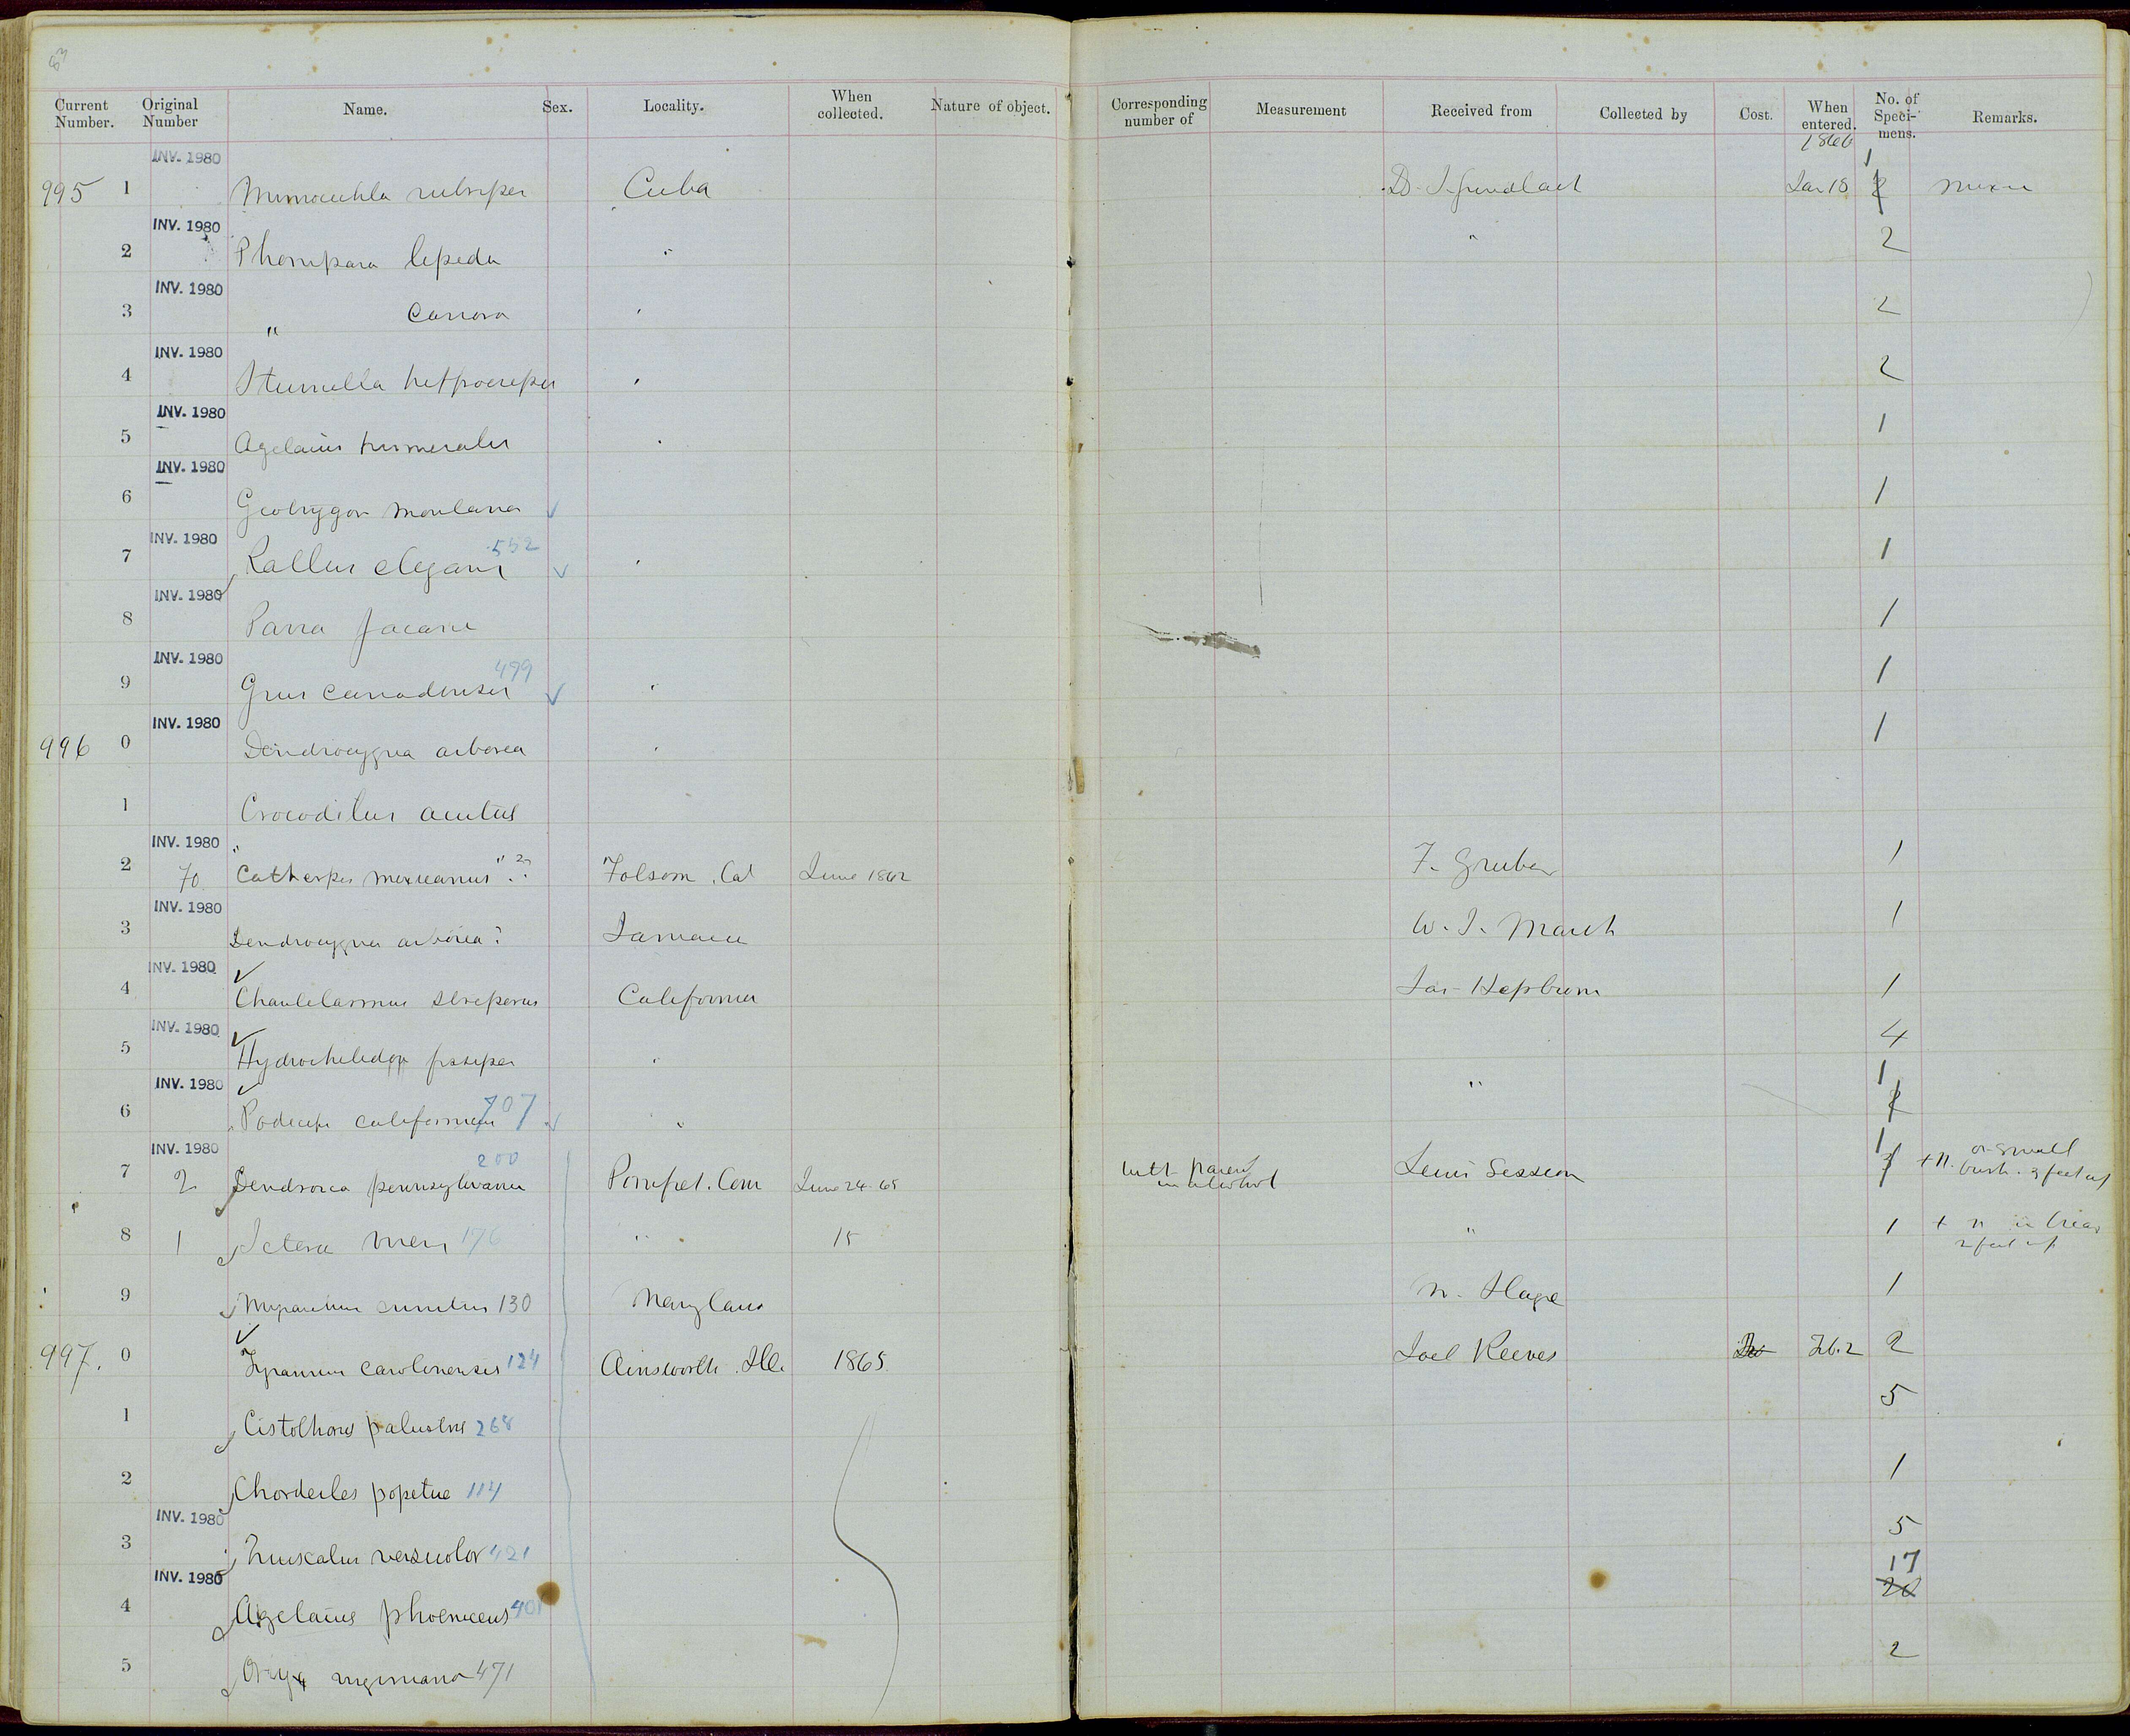 Current Number. Original Number Name. Sex. Locality. When collected. Nature of object. Corresponding number of Measurement Received from Collected by Cost. When entered. No. of Speci-mens. Remarks.
1866
INV. 1980 1
995 1 Mimocichla rubripes Cuba Dr. J. Gundlach Jan 18 2
INV. 1980
2 Phonipara lepida " " 2
INV. 1980
3 " canora " 2
INV. 1980
4 Sturnella hippocrepis " 2
INV. 1980
5 Agelaius humeralis " 1
INV. 1980
6 Geotrygon montana ✓ 1
INV. 1980
7 Rallus elegans 552 ✓ " 1
INV. 1980
8 Parra jacana 1
INV. 1980
9 Grus canadensis 499 ✓ " 1
INV. 1980
996 0 Dendrocygna arborea " 1
1 Crocodilus acutus
INV. 1980
2 70 "Catherpes mexicanus"?? Folsom. Cal June 1862 F. Gruber 1
INV. 1980
3 Dendrocygna arborea? Jamaica W. T. March 1
INV. 1980 ✓
4 Chaulelasmus streperus California Jas. Hepburn 1
INV. 1980 ✓
5 Hydrochelidon fissipes " 4
INV. 1980 ✓ 1
6 Podiceps californicus 707 ✓ " " 2
INV. 1980 200 1
7 2 Dendroica pennsylvanica Pomfret. Conn June 24. 65 with parent in alcohol Lewis Session + n. on small bush. 3 feet up
8 1 Icteria virens 176 " 15 " 1 + n in briar 2 feet up
9 Myiarchus crinitus 130 Maryland 1
✓
997. 0 Tyrannus carolinensis 124 Ainsworth. Ills 1865 Joel Reeves Feb. 2 2
1 Cistothorus palustris 268 5
2 Chordeiles popetue 114 1
INV. 1980
3 Quiscalus versicolor 421 5
INV. 1980 17
4 Agelaius phoeniceus 401 20
5 Ortyx virginiana 471 2